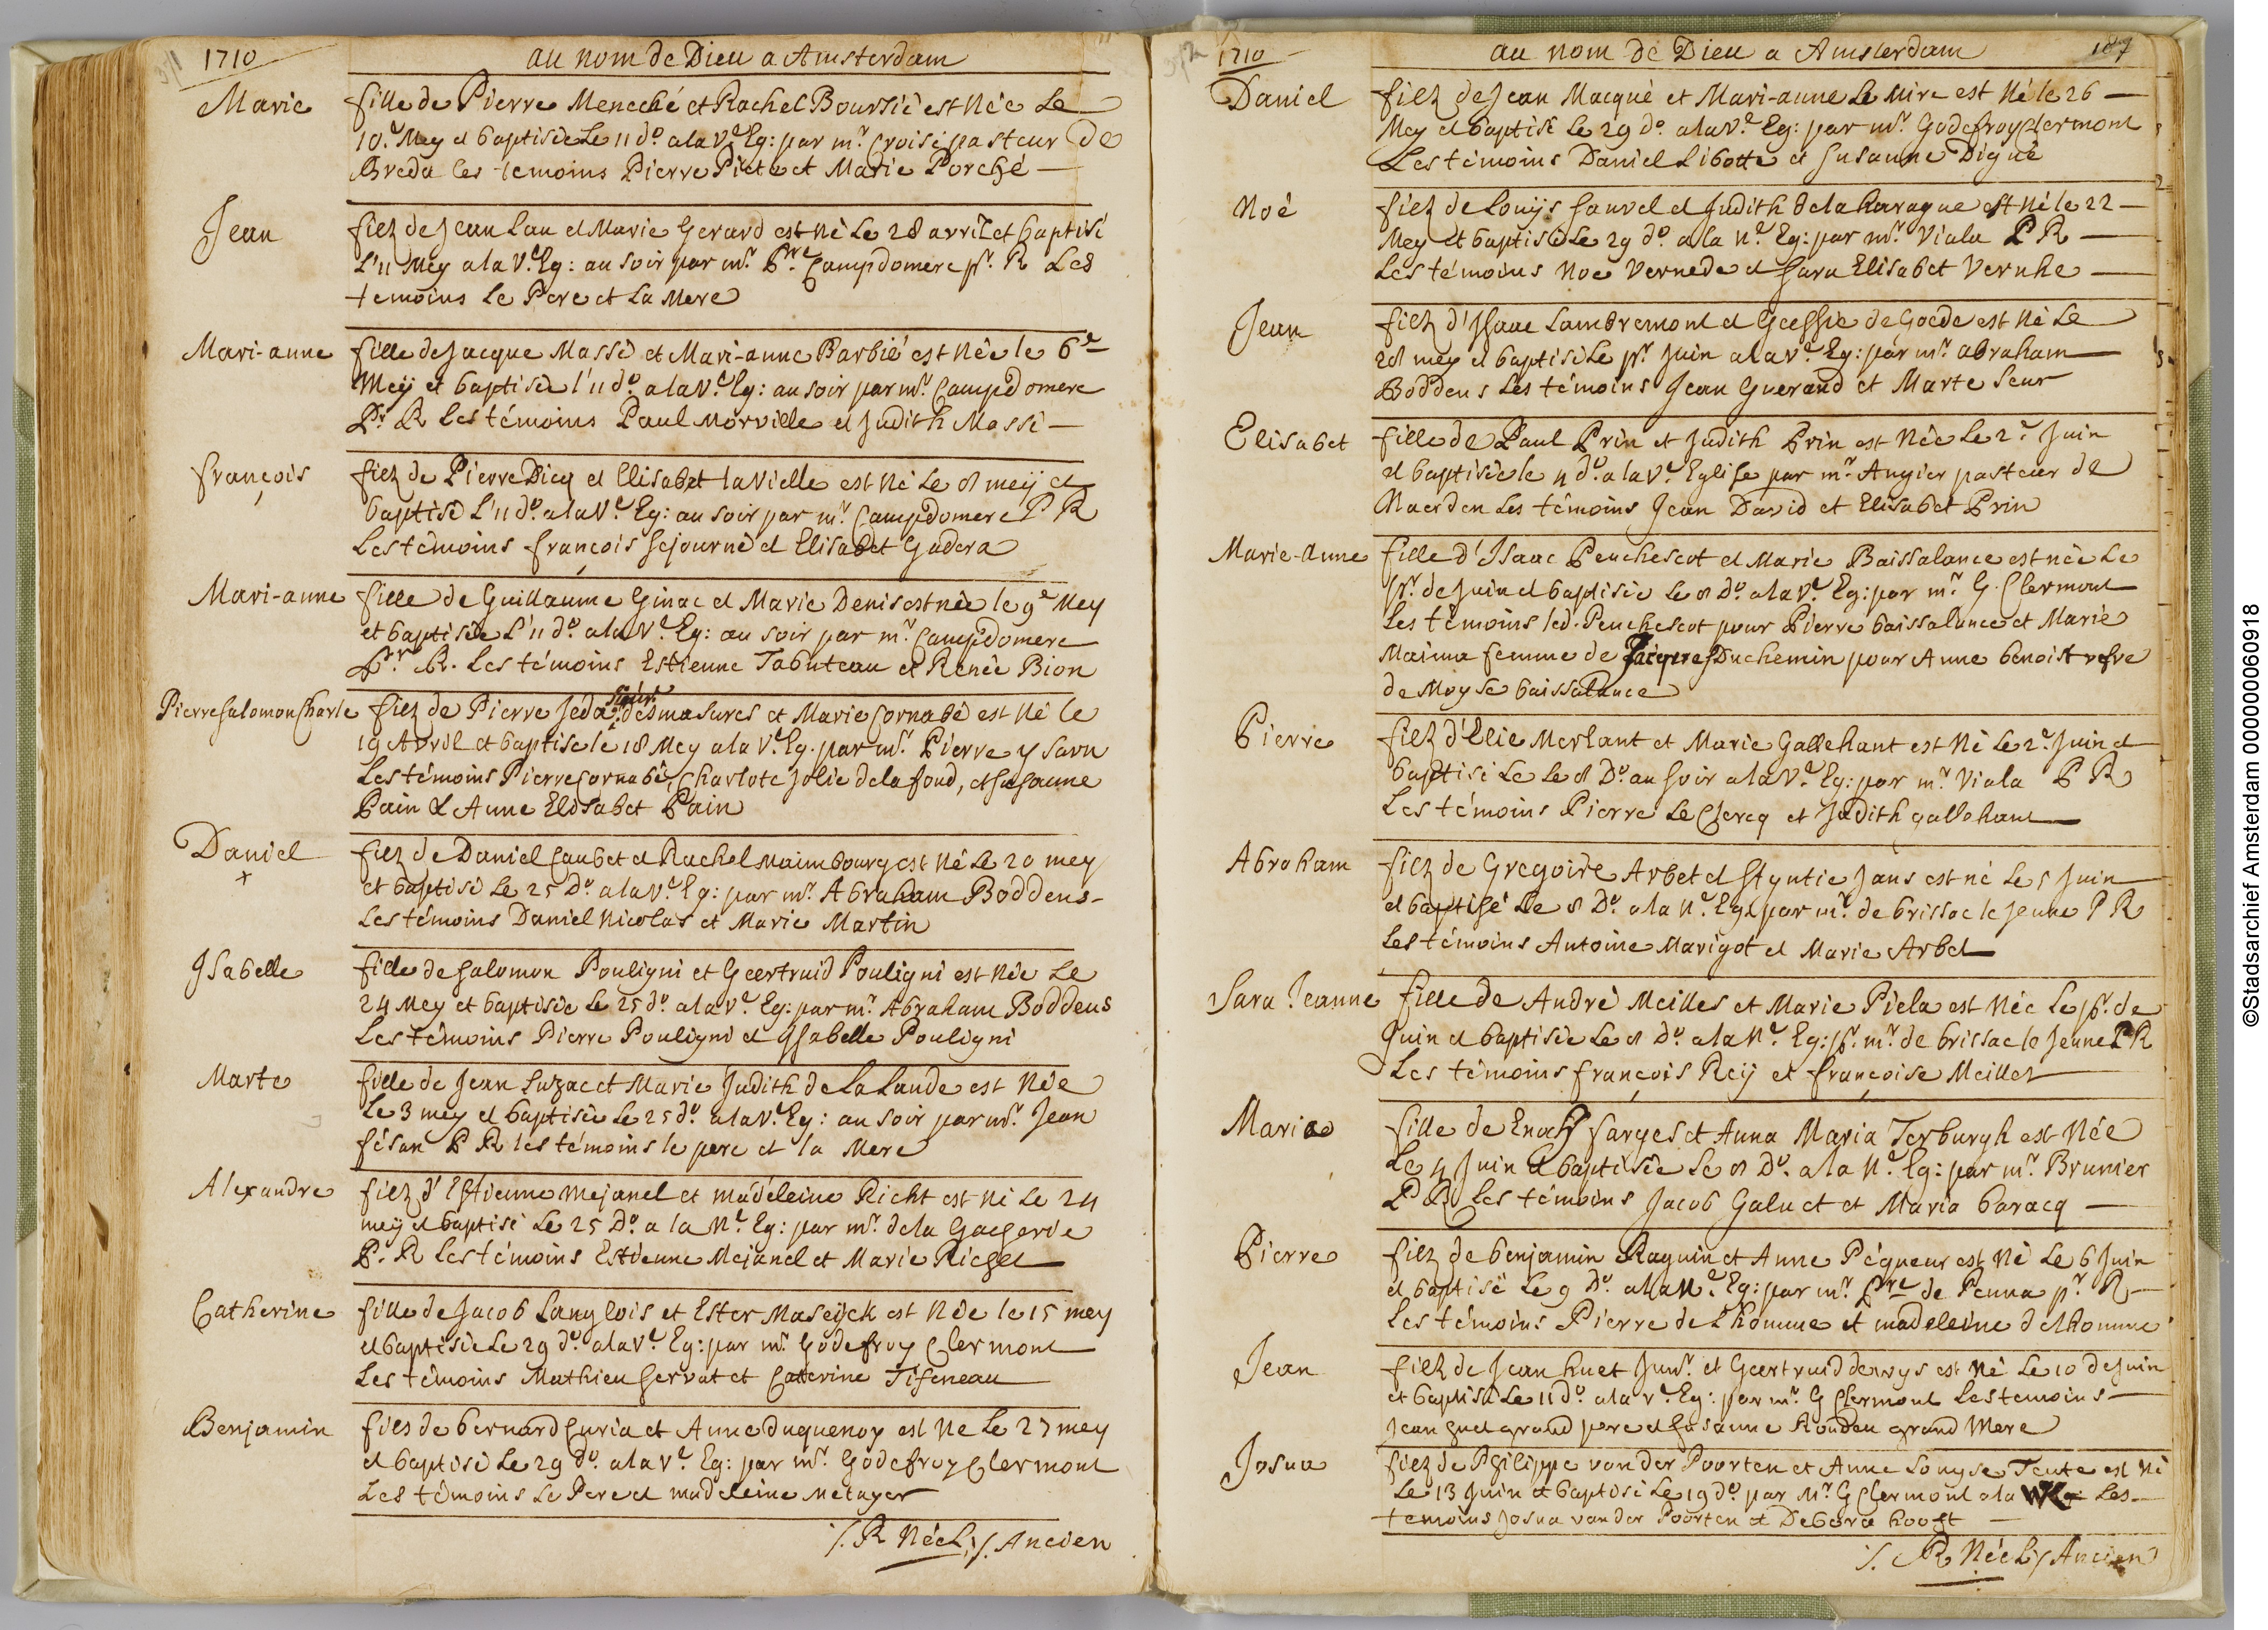 1710
au nom de Dieu a Amsterdam
Marie fille de Pierre Menecché et Rachel Boursié est Née Le
10.e Mey et baptisée Le 11 do a la V.e Eg: par mr. Croisé pasteur de
Breda les temoins Pierre Piete et Marie Porché
Jean filz de Jean Lau et Marie Gerard est né Le 28 avril et baptisé
L'11 Mey a la V.e Eg: au soir par mr. Campdomerc pr. R Les
temoins Le Pere et La Mere
Mari-anne fille de Jacque Massé et Mari-anne Barbié est Née le 6e
Meij et baptisée l'11 do. a la V.e Eg: au soir par mr. Campdomerc
Pr R Les témoins Paul Morville et Judith Massé
François filz de Pierre Dicq et Elisabet la Vielle est Né Le 8 meij et
baptisé L'11 do. a la V.e Eg: au soir par mr. Campdomerc P R
Les témoins François Sejourné et Elisabet Gadera
Mari-anne fille de Guillaume Ginac et Marie Denis est née le 9e Mey
et baptisée L'11 do. a la V.e Eg: au soir par mr. Campdomerc
Pr. R. Les témoins Estienne Tabuteau et Renée Bion
Pierre Salomon Charle filz de Pierre Jeda, sieur desmasures et Marie Cornabé est Né le
19 Avril et baptisé le 18 Mey a la V.e Eg. par mr. Pierre Ysarn
Les témoins Pierre Cornabé, Charlote Jolie de la fond, et Susanne
Pain & Anne Elisabet Pain
Daniel filz de Daniel Caubet et Rachel Maimbourg est Né Le 20 mey
et baptisé Le 25 Do a la V.e Eg: par mr. Abraham Boddens
Les témoins Daniel Nicolas et Marie Martin
Isabelle fille de Salomon Pouligni et Geertruid Pouligni est Née Le
24 Mey et baptisée Le 25 do. a la V.e Eg: par mr. Abraham Boddens
Les témoins Pierre Pouligni et Isabelle Pouligni
Marte fille de Jean Luzac et Marie Judith de La Lande est Née
Le 3 mey et baptisée Le 25 do. a la V.e Eg: au soir par mr. Jean
fésan P R les témoins le pere et la Mere
Alexandre filz d'Estienne Mejanel et Madeleine Richt est Né Le 24
meij et baptisé Le 25 Do a la N.e Eg: par mr. de la Gacherie
P. R Les témoins Estienne Mejanel et Marie Richet
Catherine fille de Jacob Langlois et Ester Maseijck est Née le 15 mey
et baptisée Le 29 do. a la V.e Eg: par mr. Godefroy Clermont
Les témoins Mathieu Servat et Catterine Tifeneau
Benjamin fils de bernard Curia et Anne duquenoy est Ne Le 27 mey
et baptisé Le 29 do. a la V.e Eg: par mr. Godefroy Clermont
Les témoins Le Pere et madeleine metayer
/. R Néel ;/. Ancien
1710
au nom de Dieu a Amsterdam
187
Daniel filz de Jean Macqué et Mari-anne Le Mire est Né le 26
Mey et baptisé Le 29 do. a la V.e Eg: par mr. Godefroy Clermont
Les témoins Daniel Libotte et Susanne Digué
Noé filz de Louijs Sauvel et Judith de la haragne est Né le 22
Mey et baptisé Le 29 do. a la N.e Eg: par mr. Viala P R
Les témoins Noe Vernede et Sara Elisabet Vernhe
Jean filz d'Isaac Lambremont et Geessie de Goede est Né Le
28 mey et baptisé Le pr. Juin a la V.e Eg: par mr. Abraham
Boddens Les témoins Jean Guerand et Marte Seur
Elisabet fille de Paul Prin et Judith Prin est Née Le 2.e Juin
et baptisée le 4 do. a la V.e Eglise par mr. Augier pasteur de
Naerden Les témoins Jean David et Elisabet Prin
Marie-Anne fille d'Isaac Peuchescot et Marie Baissalance est née Le
pr. de Juin et baptisée Le 8 Do. a la V.e Eg: par mr. G. Clermont
Les témoins led. Peuchescot pour Pierre baissalance et Marie
Maima femme de Jacques Duchemin pour Anne benoist vefve
de Moyse baissalance
Pierre filz d'Elie Merlant et Marie Gallehant est Né Le 2.e Juin et
baptisé Le Le 8 Do. au soir a la V.e Eg: par mr. Viala P R
Les témoins Pierre Le Clercq et Judith gallehant
Abraham filz de Gregoire Arbet et Styntie Jans est né Le 5 Juin
et baptisé Le 8 Do. a la N.e Eg: par mr. de brissac le Jeune P R
Les témoins Antoine Marigot et Marie Arbet
Sara Jeanne fille de André Meilles et Marie Piela est Née Le pr. de
Juin et baptisée Le 8 Do a la N.e Eg: pr. mr. de brissac le Jeune P R
Les témoins François Reij et Françoise Meilles
Maria fille de Enoch farges et Anna Maria Terburgh est Née
Le 4 Juin et baptisée Le 8 Do. a la N.e Eg: par mr. Brunier
P R Les témoins Jacob Galuet et Maria baracq
Pierre filz de benjamin Raguin et Anne Péqueur est Né Le 6 Juin
et baptisé Le 9 Do a la N.e Eg: par mr. Pre de Penna pr. R
Les témoins Pierre de L'homme et madeleine de Lhomme
Jean filz de Jean huet Junr. et Geertruid derrys est Né Le 10 de Juin
et baptisé Le 11 do. a la V.e Eg: par mr. G Clermont Les temoins
Jean huet grand pere et Susanne Rondeu grand Mere
Josua filz de Philippe van der Poorten et Anne Louyse Teute est Né
Le 13 Juin et baptisé Le 19 do par Mr. G Clermont a la Les
temoins Josua van der Poorten et Debora hooft
/. R Néel ;/ Ancien
©Stadsarchief Amsterdam 000000060918